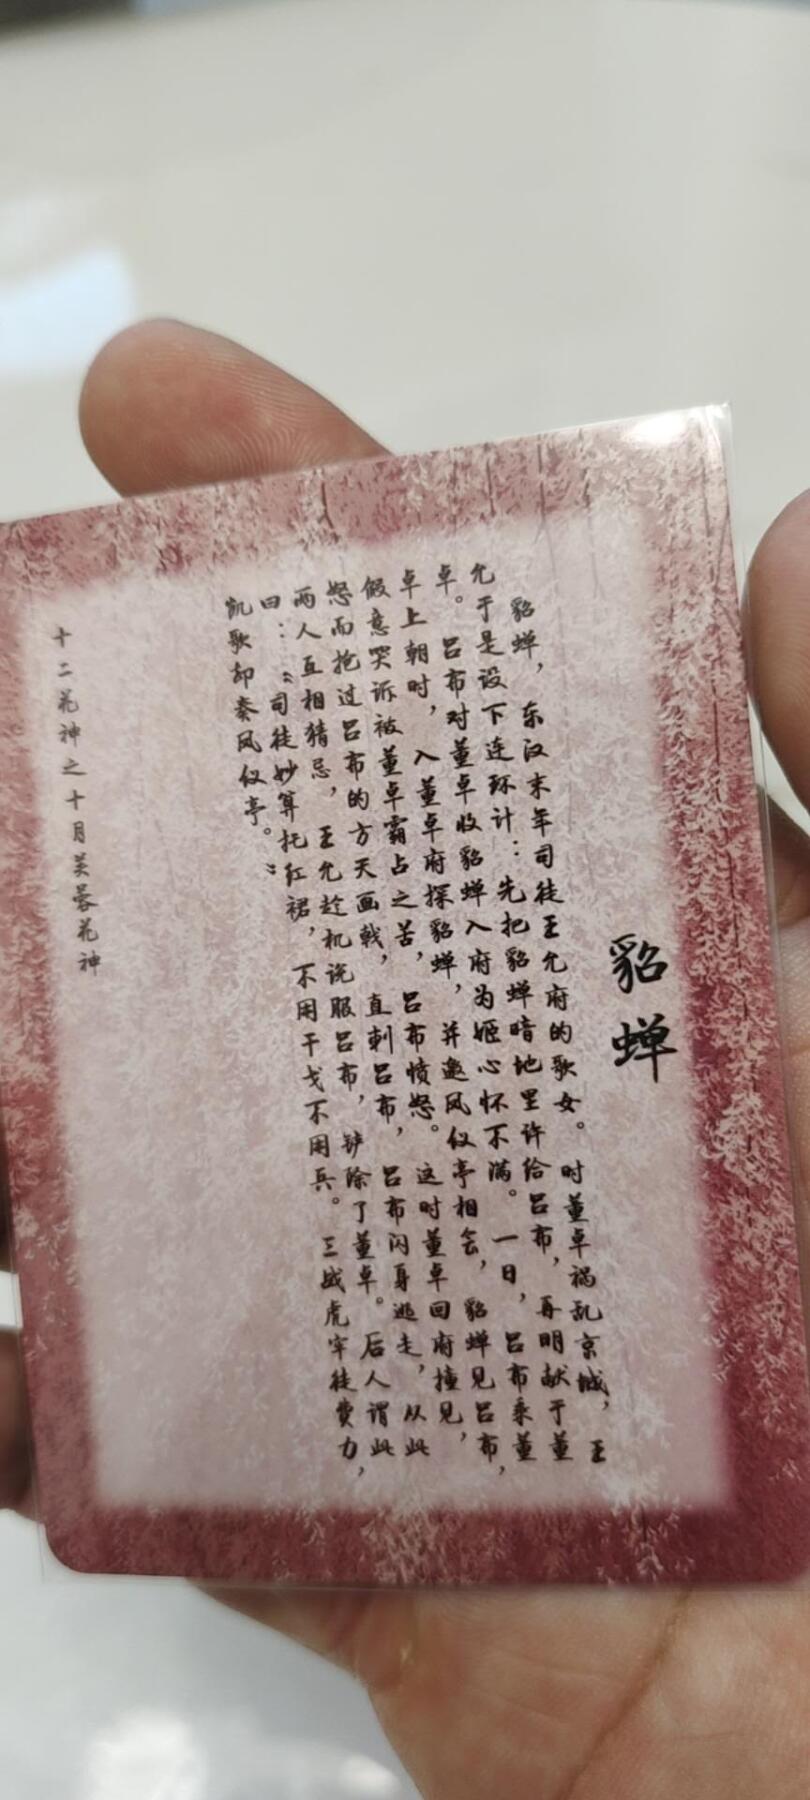 貂蝉
貂蝉，东汉末年司徒王允府的歌女。时董卓祸乱京城，王
允于是设下连环计：先把貂蝉暗地里许给吕布，再明献于董
卓。吕布对董卓收貂蝉入府为姬心怀不满。一日，吕布乘董
卓上朝时，入董卓府探貂蝉，并邀凤仪亭相会，貂蝉见吕布，
假意哭诉被董卓霸占之苦，吕布愤怒。这时董卓回府撞见，
怒而抢过吕布的方天画戟，直刺吕布，吕布闪身逃走，从此
两人互相猜忌，王允趁机说服吕布，铲除了董卓。后人谓此
曰：“司徒妙算托红裙，不用干戈不用兵。三战虎牢徒费力，
凯歌却奏凤仪亭。”
十二花神之十月芙蓉花神